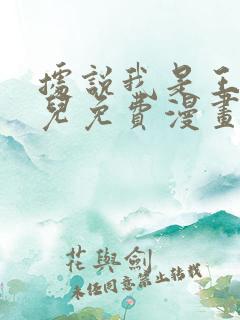 據說我是王
兒免費漫畫
花與劍
未经同意禁止转载